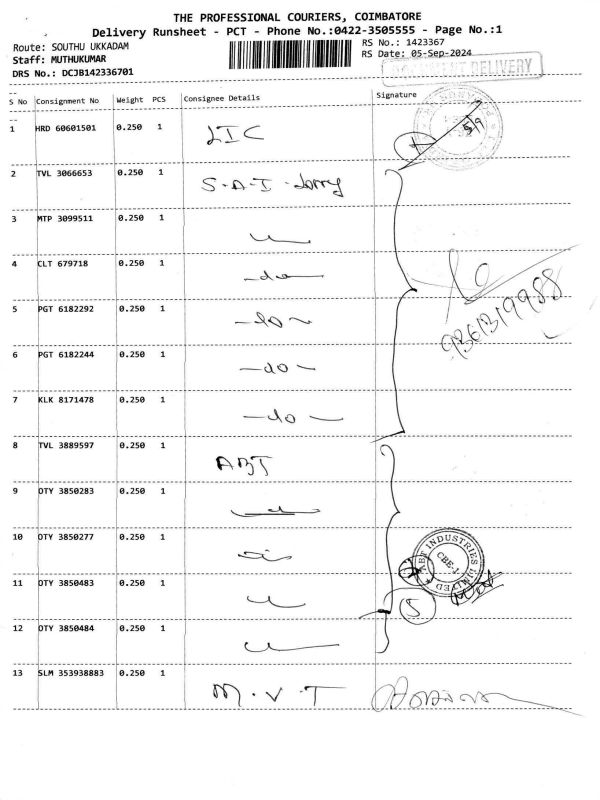 THE PROFESSIONAL COURIERS, COIMBATORE
Delivery Runsheet - PCT - Phone No.:0422-3505555 - Page No.:1
Route: SOUTHU UKKADAM
RS No.: 1423367
Staff: MUTHUKUMAR
RS Date: 05-Sep-2024
DRS No.: DCJB142336701
DELIVERY
S No Consignment No Weight PCS Consignee Details Signature
1 HRD 60601501 0.250 1 LIC
2 TVL 3066653 0.250 1 S.A.I. Lorry
3 MTP 3099511 0.250 1
4 CLT 679718 0.250 1 -do-
5 PGT 6182292 0.250 1 -do-
9361319988
6 PGT 6182244 0.250 1 -do-
7 KLK 8171478 0.250 1 -do-
8 TVL 3889597 0.250 1 ABT
9 OTY 3850283 0.250 1
10 OTY 3850277 0.250 1
ABT INDUSTRIES LIMITED
CBE-1.
11 OTY 3850483 0.250 1
5
12 OTY 3850484 0.250 1
13 SLM 353938883 0.250 1 M.V.T